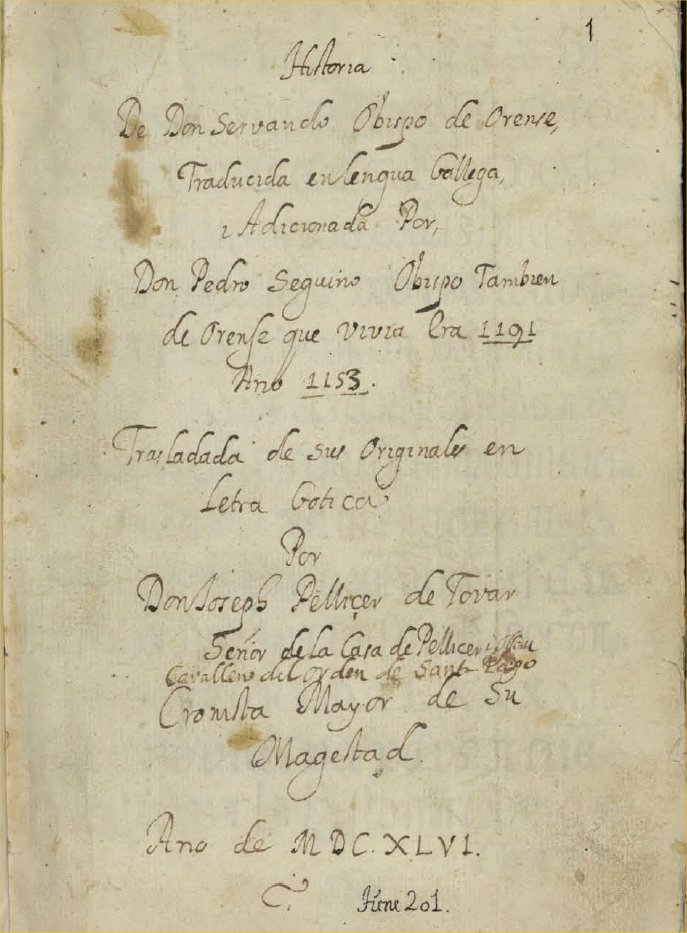 1
Historia
De Don Servando Obispo de Orense,
Traducida en lengua Gallega,
i Adicionada Por,
Don Pedro Seguino Obispo Tambien
de Orense que vivia Era 1191
Año 1153.
Trasladada de sus Originales en
Letra Gotica
Por
Don Joseph Pelliçer de Tovar
Señor de la Casa de Pellicer i
Cavallero del orden de Santiago
Cronista Mayor de Su
Magestad.
Año de MDC.XLVI.
tiene 201.